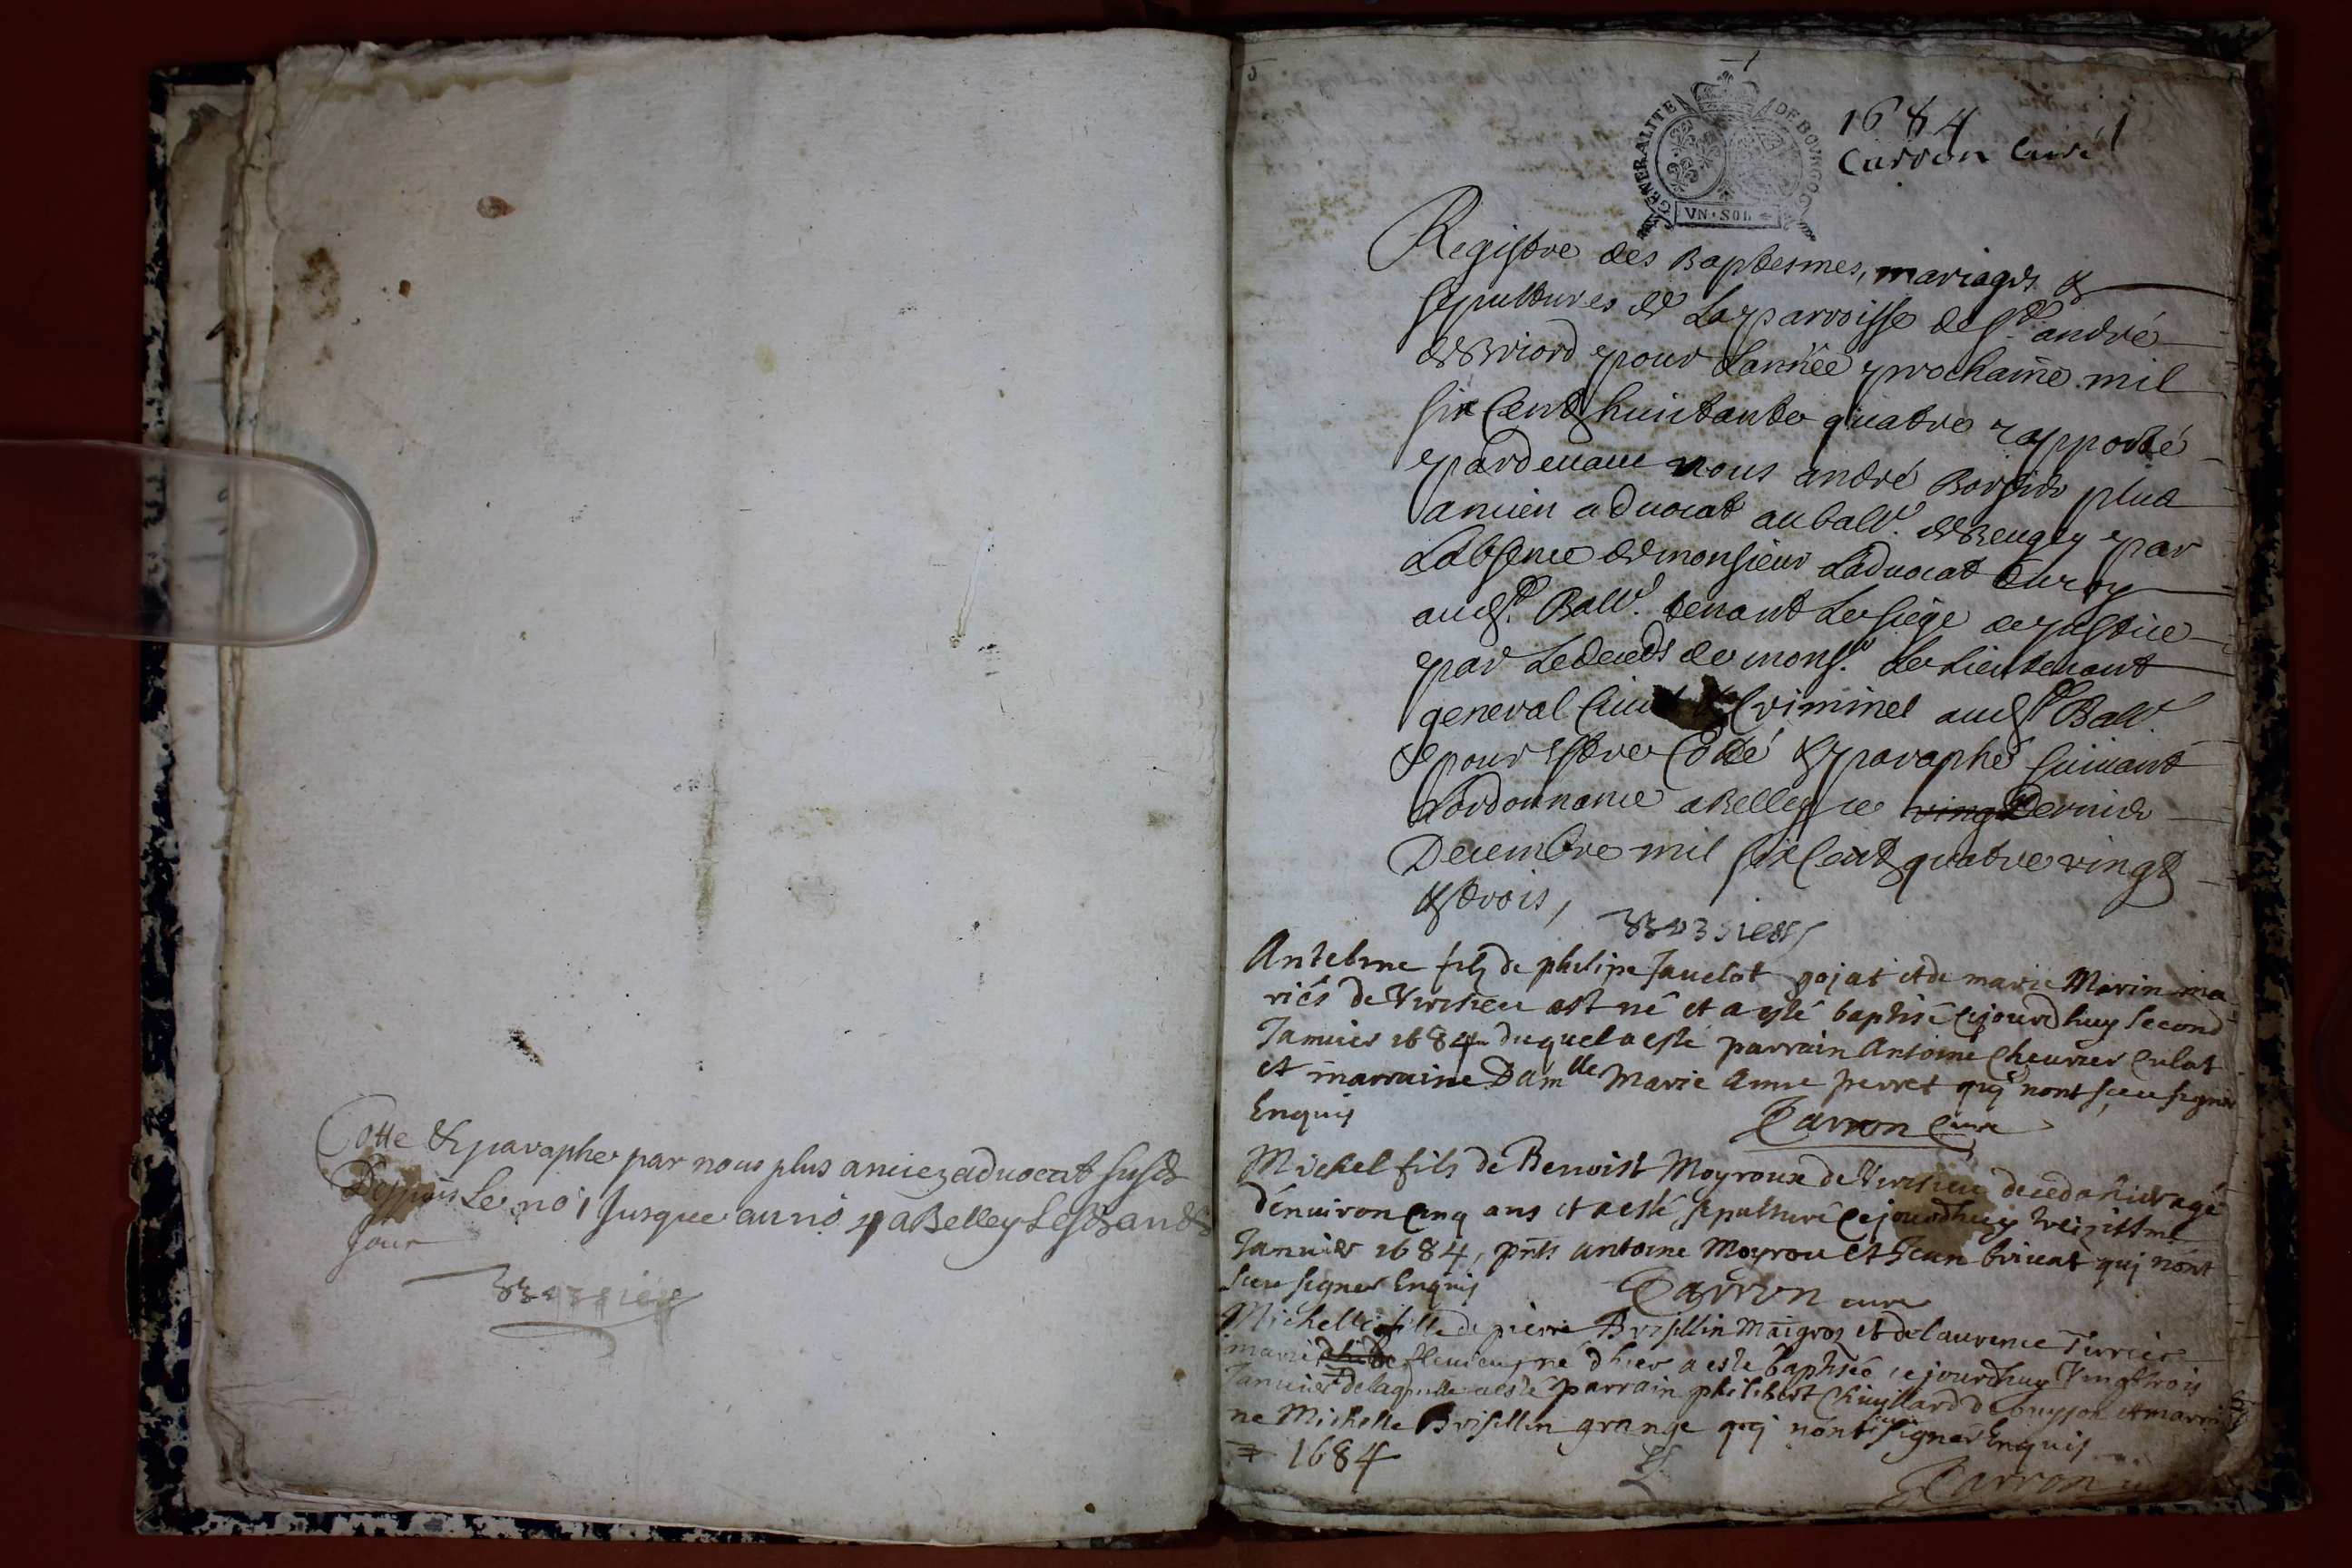 Cotte & paraphe par nous plus ancien advocat susd
Despuis le no 1 jusque au no a Belley les an &
jour
GENERALITE DE BOURGOG
VN · SOL
1684
Carron Curé
1
Registre des Baptesmes, mariages &
sepultures de la parroisse de St andré
de Briord pour lannée prochaine mil
six cent huictante quatre rapporté
pardeuant nous andré Borsier plus
ancien aduocat au balle de Beugey par
labsence de monsieur laduocat du roy
aud Balle tenant le siege de justice
par le deceds de monsr le lieutenant
general Ciuil & Criminel aud Balle
& pour estre Cotté & paraphé suiuant
lordonnance a Belley ce vingt dernier
Decembre mil six cent quatre vingt
& trois,
Antelme filz de philipe Jauelot gojat et de marie Marin ma
riés de Vercieu est né et a esté baptisé cejourdhuy second
Januier 1684 duquel a esté parrain Antoine Cheurier Culat
et marraine Damlle Marie Anne perret qui nont sceu signer
Enquis
Carron Curé
Michel fils de Benoist Moyroux de Vercieu deceda hier agé
denuiron cinq ans et a esté sepulturé cejourdhuy treizisme
Januier 1684, pnts antoine Moyrou et Jean briuat qui nont
sceu signer Enquis
Carron cure
Michelle fille de pierre Brisellin Maigroz et de laurence Terrier
marié fleurieu, né dhier a esté baptisée cejourdhuy Vingtrois
Januier delaquelle a esté parrain philibert Chuillard de buysson et marrai
ne Michelle Brisellin grange qui nont sceu signer Enquis
1684
Carron